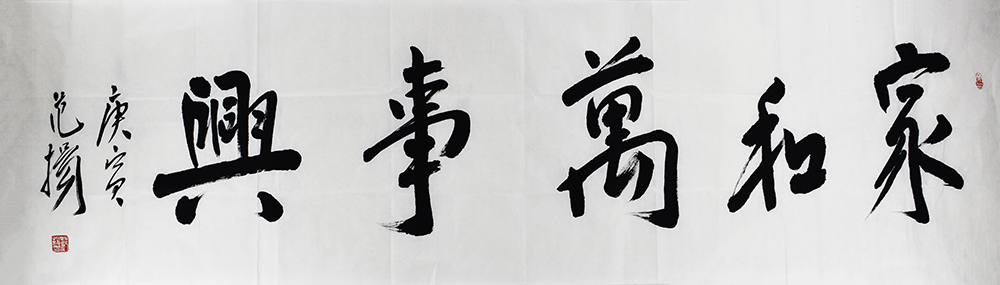 家和萬事興
庚寅
范